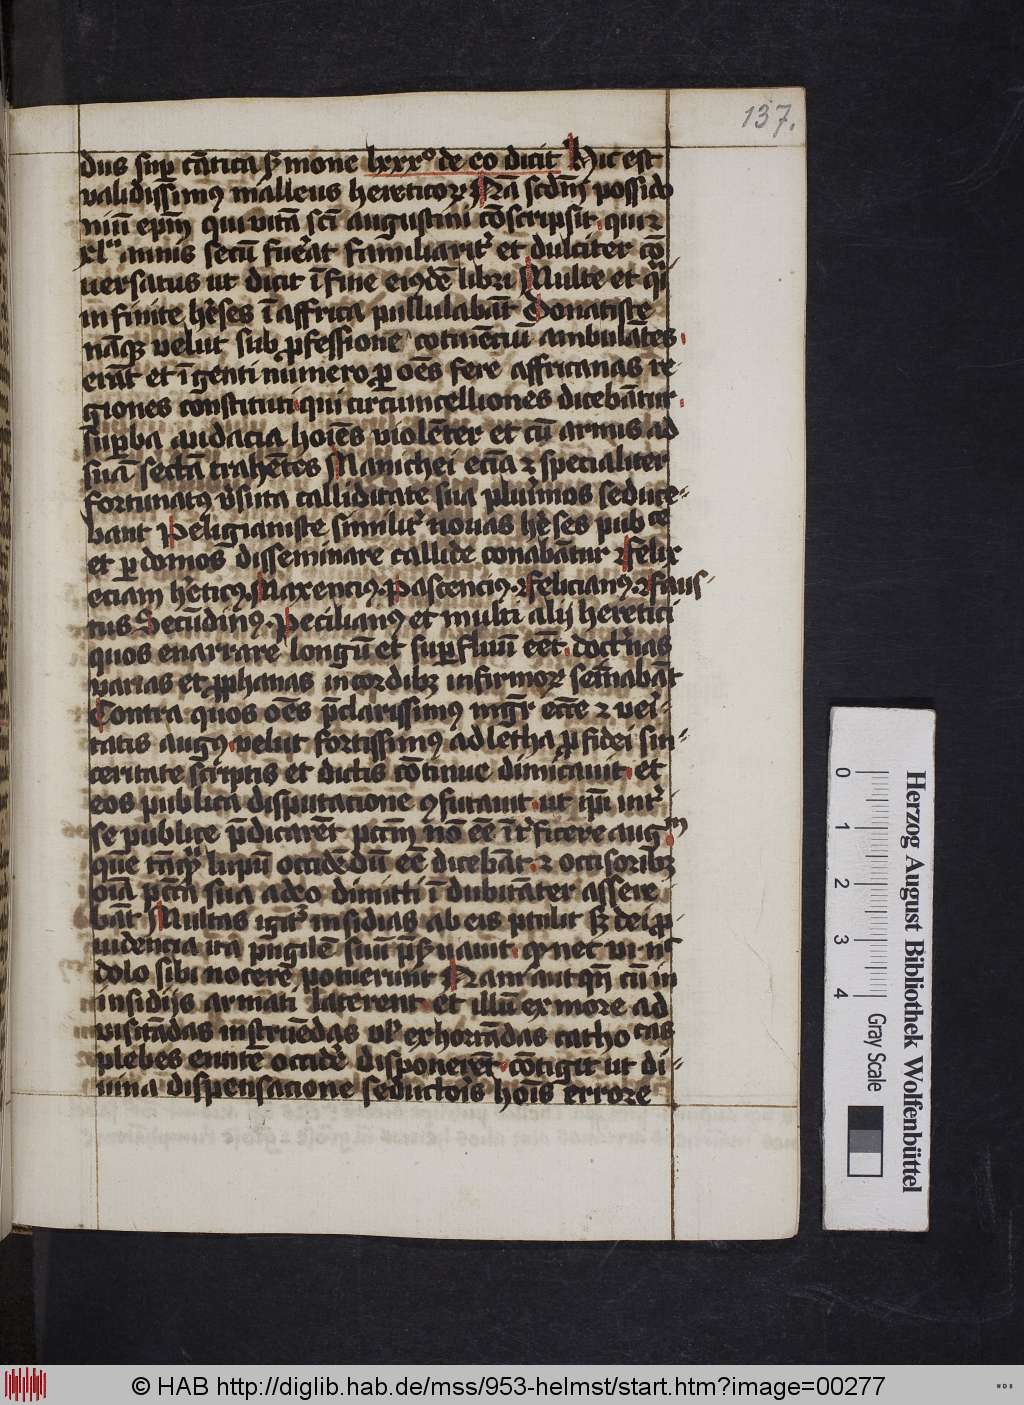 137.
dus sup cātica s̄mone lxxx° de eo dicit Hic est
validissimꝰ malleus hereticoꝝ Nā scd̄m possido
niū ep̄m qui vitā sc̄i augustini cōscripsit quiꝛ
xl annis secū fuerat familiarit̄ et dulciter cō
uersatus ut dicit ī fine eiꝰdē libri Multe et q̄i
infinite hēses ī affrica pullulabāt Donatiste
nāqꝫ velut sub ꝓfessione cōtinēciū ambulātes
erāt et īgenti numero ꝑ oēs fere affricanas re
giones cōnstituti qui circumcelliones dicebātur
supba audacia hoīes violēter et cū armis ad
suā sectā trahētes Manichei eciā ⁊ specialiter
fortunatꝰ v̄suta calliditate sua plurimos seduce-
bant Peligianiste similit̄ nouas hēses pub ce
et ꝑ domos disseminare callide conabātur ⁊ felix
eciam h̄eticꝰ Maxenciꝰ Pascenciꝰ ⁊ felicianꝰ ⁊ faus-
tus Secūdinꝰ Pecilianꝰ et multi alij heretici
quos enarrare longū et supfluū eēt doct̄nas
varias et ꝓphanas in cordibꝫ infirmoꝝ semīabāt
Contra quos oēs p̄clarissimꝰ mgr̄ ecc̄e ⁊ veri-
tatis augꝰ velut fortissimꝰ adletha ꝓ fidei sin-
ceritate scriptis et dictis cōtinue dimicauit et
eos publica disputacione ꝯfutauit ut ip̄i int̄
se publice p̄dicarēt pctm̄ nō eē īt̄ficere augm
quē tāqꝫ lupū occidēdū eē dicebāt ⁊ occisoribꝫ
oīa pctā sua adeo dimitti īdubitāter assere
bāt Multas igit̄ insidias ab eis ptulit sꝫ dei ꝓ-
uidencia ita pugilē suū p̄s̄uauit qꝫ nec vi nec
dolo sibi nocere potuerunt Nam aut qn̄ cū in
insidijs armati laterent et illū ex more ad
visitādas instruēdas vl̄ exhortādas catho cas
plebes euntē occidē disponerēt cōtigit ut di-
uina dispensacione seductoris hoīs errore
Herzog August Bibliothek Wolfenbüttel
0 1 2 3 4 Gray Scale
© HAB http://diglib.hab.de/mss/953-helmst/start.htm?image=00277